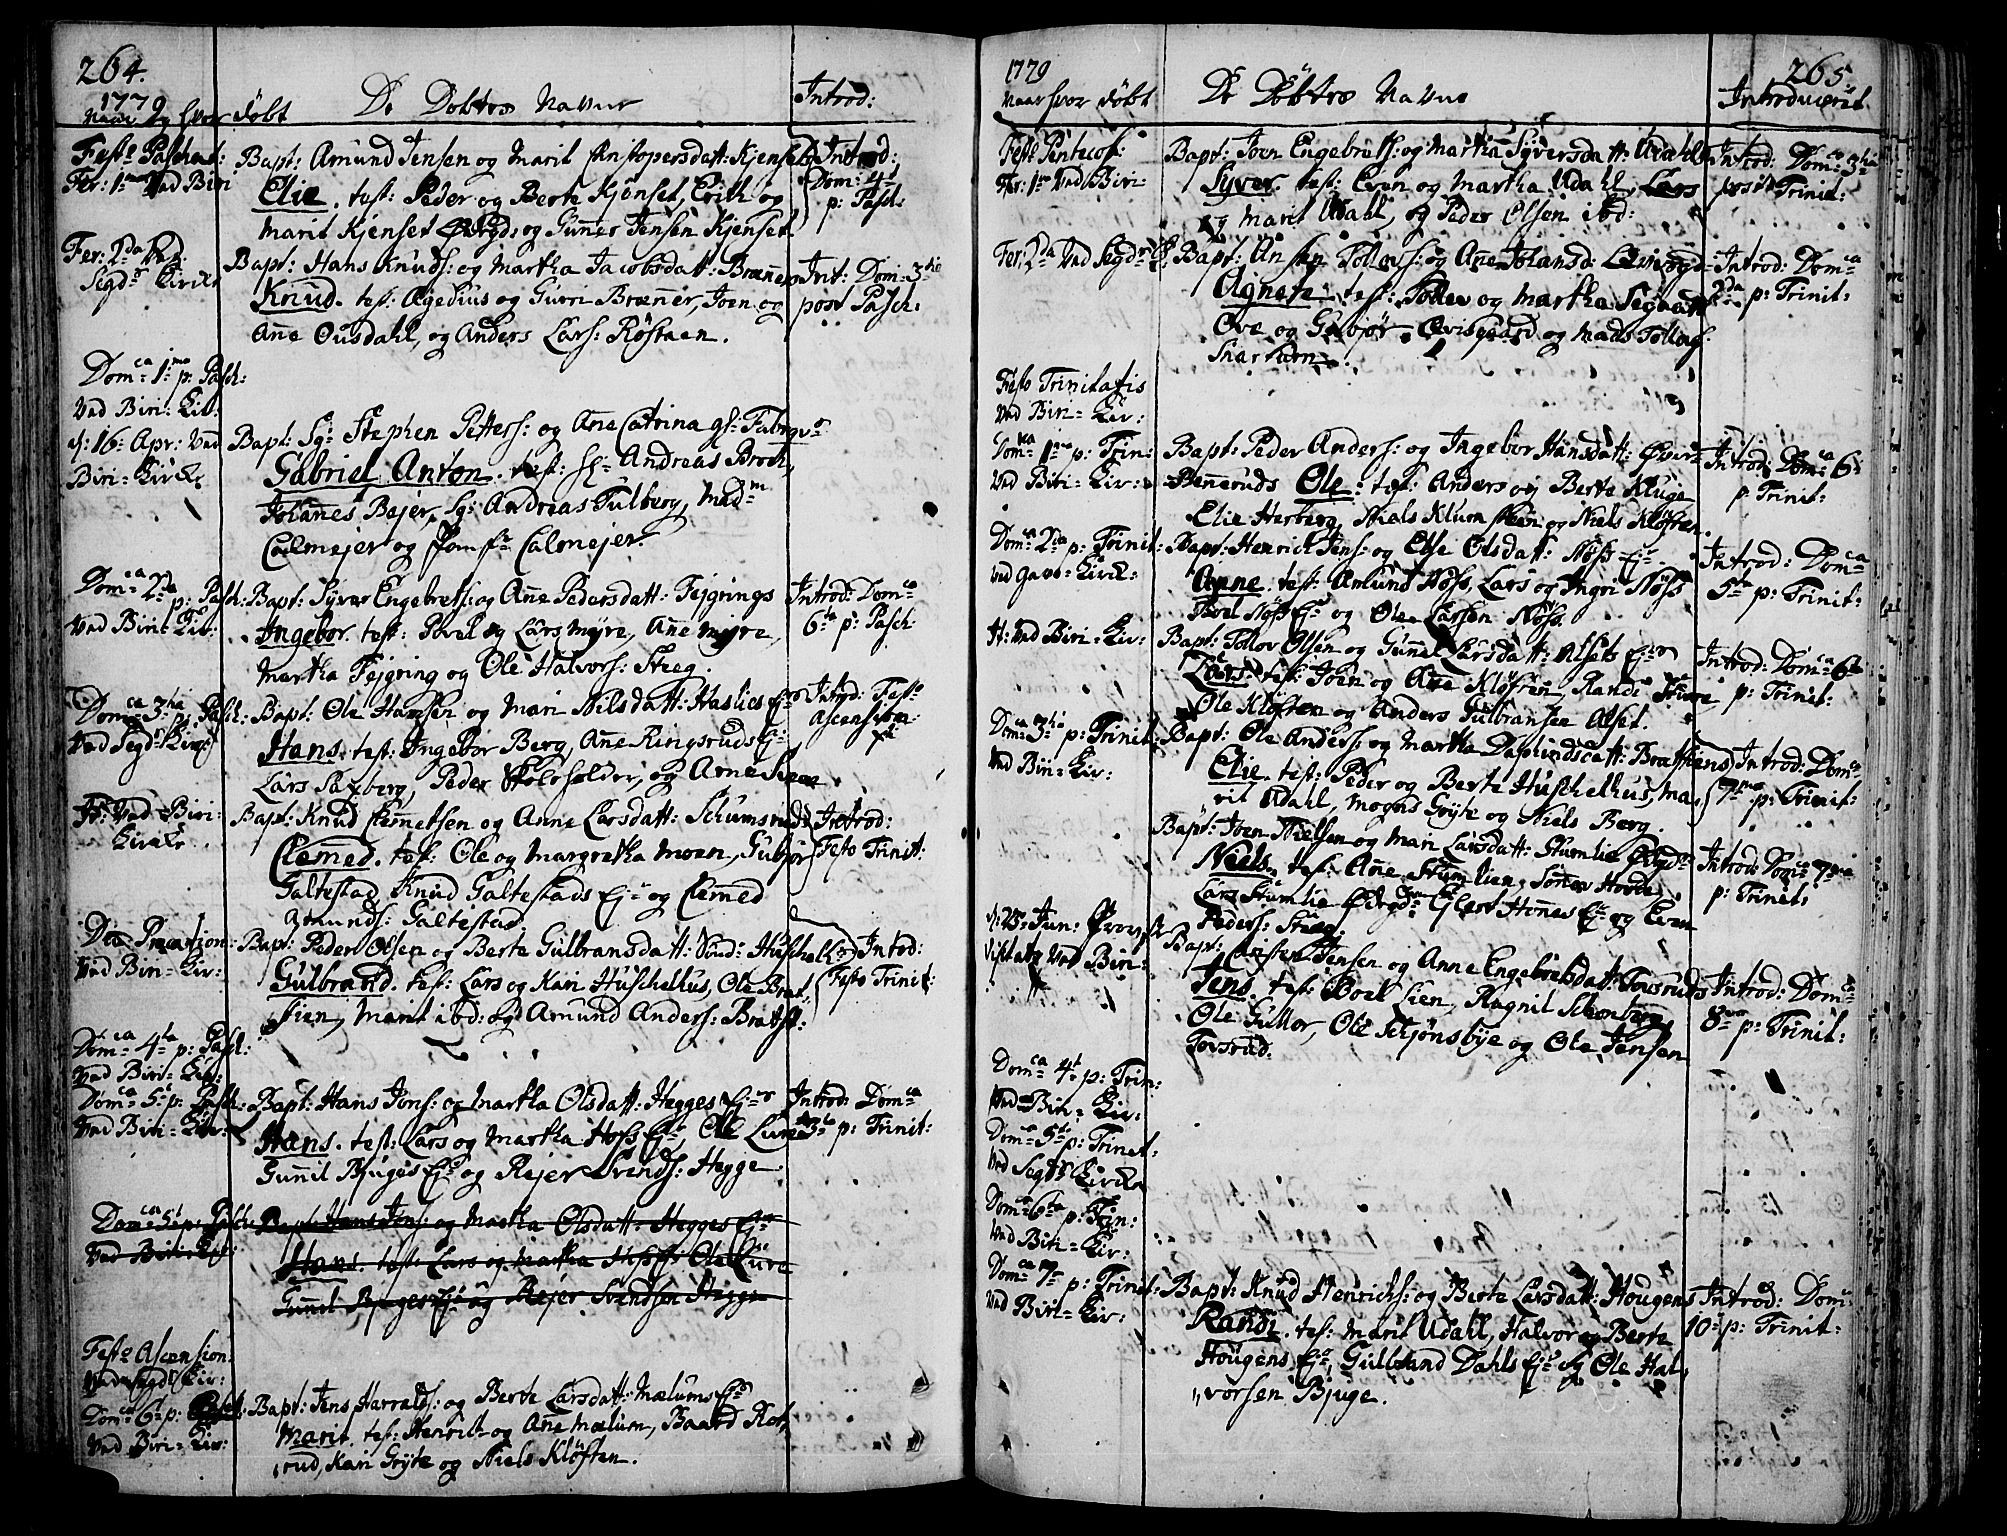 264.
1779
Naar og hvor døbt
De Døbtes Navne
Introd:
Festo Paschat:
Fer: 1ma Ved Biri
Bapt: Amund Jensen og Marit Christopersdatt: Kjenset
Elie. test: Peder og Berte Kjenset, Erich og
Marit Kjenset Øvrgds og Guner Jensen Kjenset.
Introd:
Dom: 4ta
p: Pasch:
Fer: 2da Ved
Segd: Kirke
Bapt: Hans Knuds: og Martha Jacobsdatt: Brænne
Knud. test: og Gurri Brænner, Joen og
Ane Ousdahl, og Anders Lars: Røstaen.
Init: Dom: 3tie
post Pasch:
Domca 1ma p: Pasch:
Ved Biri-Kir:
d: 16 Apr: Ved
Biri-Kircke
Bapt: Sg: Stephen Petters: og Ane Catrina
Gabriel Anton. test: Sg: Andreas Broch,
Johannes Bejer, Sg: Andreas Fulberg, Madm
Calmejer og Jomfr Calmejer.
Domca 2da p: Pasch:
Ved Biri-Kir:
Bapt: Syver Engebrets: og Ane Pedersdatt: Fejgrings
Ingebor. test: Povel og Lars Myre, Ane Myre,
Martha Fejgring og Ole Halvors: Steeg.
Introd: Domca
6ta p: Pasch:
Domca 3tia p: Pasch:
Ved Segd: Kirke
Bapt: Ole Hansen og Mari Nilsdatt: Haslies Ejr
Hans. test: Ingebor Berg, Ane Ringsruds Ejr
Lars Saxberg, Peder Skoleholder, og Arne
Introd: Festo
Ascension:
It: Ved Biri-
Kircke
Bapt: Knud Clemetsen og Anne Larsdatt: Schumsruds
Clemed. test: Ole og Margretha Moen, Gubjør
Galtestad, Knud Galtestads Ejr og Clemed
Amunds: Galtestad
Introd:
Festo Trinit:
Die Precation:
Ved Biri-Kir:
Bapt: Peder Olsen og Berte Gulbransdatt: Huschelhus
Gulbrand. test: Lars og Kari Huschelhus, Ole Brat,
stien, Marit ibd: og Amund Anders: Bratst:
Introd:
Festo Trinit:
Domca 4ta p: Pasch:
Ved Biri-Kir:
Domca 5t p: Pasch:
Ved Biri-Kir:
Bapt: Hans Jons: og Martha Olsdatt: Hegges Ejr
Hans. test: Lars og Martha Hoss Ejr, Ole Lure
Gunnil Bjuges Ejr og Rejer Svends: Hegge
Introd: Domca
3tia p: Trinit:
Domca 5t p: Pasch:
Ved Biri-Kir:
Bapt: Hans Jons: og Martha Olsdatt: Hegges Ejr
Hans. test: Lars og Martha Ole Lure
Gunnil Bjuges Ejr og Rejer Svendsen Hegge
Festo Ascension:
Ved Segd: Kir:
Domca 6ta p: Pasch:
Ved Biri-Kir:
Bapt: Jens Harralds: og Berte Larsdatt: Mælums Ejr
Marit. test: Henrich og Ane Mælum, Baard Rot,
rud, Kari Gryte og Niels Kløften.
1779
Naar hvor døbt
De Døbtes Navne
265
Introduceret
Festo Pentecost:
Fer: 1ma Ved Biri-
Bapt: Joen Engebrets: og Martha Syversdatt: Udahl
Syver. test: Even og Martha Udahl, Lars
og Marit Udahl, og Peder Olsen ibd:
Introd: Domca 3tia
post Trinit:
Fer: 2da Ved Segd: K:
Bapt: Tollevs: og Ane Johansd:
Agnete. test: Tollev og Martha
Ove og Gubjør Qvisgaard og Mads Tollevs:
Snartum.
Introd: Domca
2da p: Trinit:
Festo Trinitatis
Ved Biri-Kir:
Domca 1ma p: Trin:
Ved Biri-Kir:
Bapt: Peder Anders: og Ingebor Hansdatt: Øver-
Benneruds Ole. test: Anders og Berte Kluge
Elie Herberg, Niels Klum og Niels Kløften
Introd: Domca 6-
p: Trinit:
Domca 2da p: Trinit:
Ved Gaas-Kirck:
Bapt: Henrich Jens: og Else Olsdatt: Nøss Ejr
Anne. test: Amund Nøss, Lars og Ingri Nøss
Povel Nøss Ejr og Ole Larsen Nøss.
Introd: Domca
5ta p: Trinit:
It: Ved Biri-Kir:
Bapt: Tollov Olsen og Gunnel Larsdatt: Alsets Ejr
Lars. test: Joen og Ane Kløften, Randi
Ole Kløften og Anders Gulbransen Alset.
Introd: Domca 6ta
p: Trinit:
Domca 3tia p: Trinit:
Ved Biri-Kir:
Bapt: Ole Anders: og Martha Bratstiens
Elie. test: Peder og Berte Huschelhus, Ma,
rit Udahl, Mogens Gryte og Niels Berg.
Introd: Domca
7ma p: Trinit:
Bapt: Joen Nielsen og Mari Larsdatt: Stumlie
Niels. test: Ane Stumlien, Hovde,
Lars Stumlie Hønes Ejr og Even
Peders: Steeg.
Introd: Domca 7ma
p: Trinit:
d: 25 Jun: Provst
Visitatz Ved Biri-
Bapt: Christen Jensen og Anne Engebretsdatt: Tovsruds
Jens. test: Boel Lien, Ragnil Schonberg,
Ole Gullor, Ole Schjønsbye og Ole Jensen
Tovsrud.
Introd: Domca
8va p: Trinit:
Domca 4t p: Trin:
Ved Biri-Kir:
Domca 5t p: Trinit:
Ved Segd: Kircke
Domca 6ta p: Trin:
Ved Biri-Kir:
Domca 7ma p: Trinit:
Ved Biri-Kir:
Bapt: Knud Henrichs: og Berte Larsdatt: Hougens
Randi. test: Marit Udahl, Halvor og Berte
Hougens Ejr, Gulbrand Dahls Ejr og Ole Hal,
vorsen Bjuge.
Introd: Dom:
10- p: Trinit: